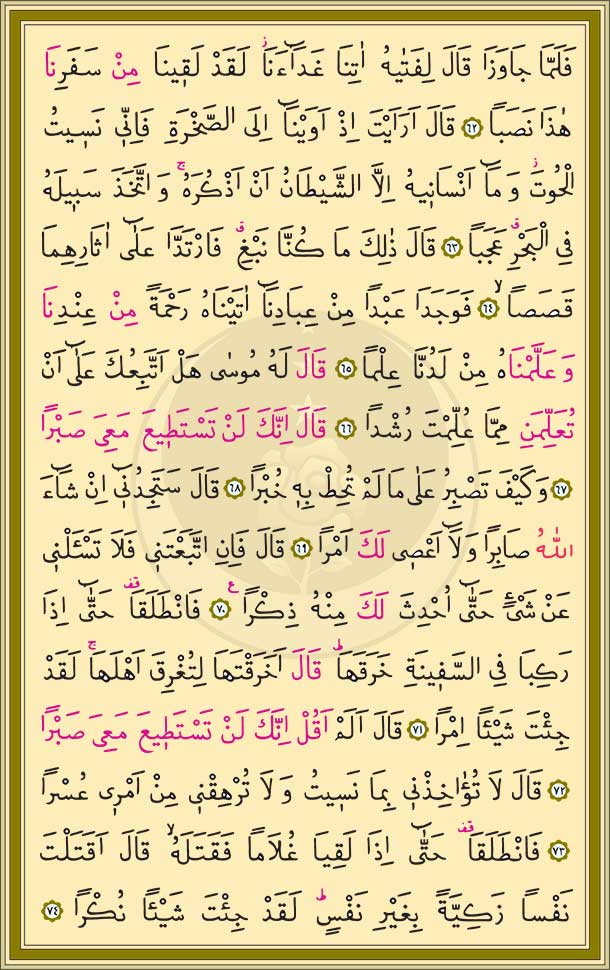 فَلَمَّا جَاوَزَا قَالَ لِفَتٰيهُ اٰتِنَا غَدَٓاءَنَاۘ لَقَدْ لَقٖينَا مِنْ سَفَرِنَا
هٰذَا نَصَباً ﴿٦٢﴾ قَالَ اَرَاَيْتَ اِذْ اَوَيْنَٓا اِلَى الصَّخْرَةِ فَاِنّٖى نَسٖيتُ
الْحُوتَۘ وَمَٓا اَنْسَانٖيهُ اِلَّا الشَّيْطَانُ اَنْ اَذْكُرَهُۚ وَاتَّخَذَ سَبٖيلَهُ
فِى الْبَحْرِۗ عَجَباً ﴿٦٣﴾ قَالَ ذٰلِكَ مَا كُنَّا نَبْغِۗ فَارْتَدَّا عَلٰٓى اٰثَارِهِمَا
قَصَصاًۙ ﴿٦٤﴾ فَوَجَدَا عَبْداً مِنْ عِبَادِنَٓا اٰتَيْنَاهُ رَحْمَةً مِنْ عِنْدِنَا
وَعَلَّمْنَاهُ مِنْ لَدُنَّا عِلْماً ﴿٦٥﴾ قَالَ لَهُ مُوسٰى هَلْ اَتَّبِعُكَ عَلٰٓى اَنْ
تُعَلِّمَنِ مِمَّا عُلِّمْتَ رُشْداً ﴿٦٦﴾ قَالَ اِنَّكَ لَنْ تَسْتَطٖيعَ مَعِىَ صَبْراً
﴿٦٧﴾ وَكَيْفَ تَصْبِرُ عَلٰى مَا لَمْ تُحِطْ بِهٖ خُبْراً ﴿٦٨﴾ قَالَ سَتَجِدُنٖٓى اِنْ شَٓاءَ
اللّٰهُ صَابِراً وَلَٓا اَعْصٖى لَكَ اَمْراً ﴿٦٩﴾ قَالَ فَاِنِ اتَّبَعْتَنٖى فَلَا تَسْـَٔلْنٖى
عَنْ شَىْءٍ حَتّٰٓى اُحْدِثَ لَكَ مِنْهُ ذِكْراً ع ﴿٧٠﴾ فَانْطَلَقَا۠ حَتّٰٓى اِذَا
رَكِبَا فِى السَّفٖينَةِ خَرَقَهَاؕ قَالَ اَخَرَقْتَهَا لِتُغْرِقَ اَهْلَهَاۚ لَقَدْ
جِئْتَ شَيْـٔاً اِمْراً ﴿٧١﴾ قَالَ اَلَمْ اَقُلْ اِنَّكَ لَنْ تَسْتَطٖيعَ مَعِىَ صَبْراً
﴿٧٢﴾ قَالَ لَا تُؤَاخِذْنٖى بِمَا نَسٖيتُ وَلَا تُرْهِقْنٖى مِنْ اَمْرٖى عُسْراً
﴿٧٣﴾ فَانْطَلَقَا۠ حَتّٰٓى اِذَا لَقِيَا غُلَاماً فَقَتَلَهُۙ قَالَ اَقَتَلْتَ
نَفْساً زَكِيَّةً بِغَيْرِ نَفْسٍؕ لَقَدْ جِئْتَ شَيْـٔاً نُكْراً ﴿٧٤﴾